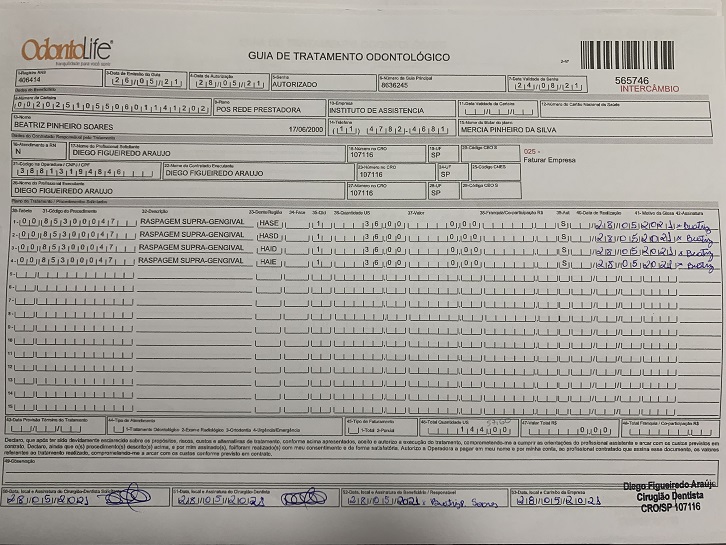 OdontoLife
tranquilidade para você sorrir
GUIA DE TRATAMENTO ODONTOLÓGICO
2-Nº
565746
INTERCÂMBIO
1-Registro ANS
406414
3-Data de Emissão da Guia
26/05/21
4-Data de Autorização
28/05/21
5-Senha
AUTORIZADO
6-Número da Guia Principal
8636245
7-Data Validade da Senha
24/08/21
Dados do Beneficiário
8-Número da Carteira
00202510550601141202
9-Plano
POS REDE PRESTADORA
10-Empresa
INSTITUTO DE ASSISTENCIA
11-Data Validade da Carteira
12-Número do Cartão Nacional de Saúde
13-Nome
BEATRIZ PINHEIRO SOARES
17/06/2000
14-Telefone
(11) 4782-4681
15-Nome do titular do plano
MERCIA PINHEIRO DA SILVA
Dados do Contratado Responsável pelo Tratamento
16-Atendimento a RN
N
17-Nome do Profissional Solicitante
DIEGO FIGUEIREDO ARAUJO
18-Número no CRO
107116
19-UF
SP
20-Código CBO S
025 -
Faturar Empresa
21-Código na Operadora / CNPJ / CPF
38813194846
22-Nome do Contratado Executante
DIEGO FIGUEIREDO ARAUJO
23-Número no CRO
107116
24-UF
SP
25-Código CNES
26-Nome do Profissional Executante
DIEGO FIGUEIREDO ARAUJO
27-Número no CRO
107116
28-UF
SP
29-Código CBO S
Plano de Tratamento / Procedimentos Solicitados
30-Tabela 31-Código do Procedimento 32-Descrição 33-Dente/Região 34-Face 35-Qtd 36-Quantidade US 37-Valor 38-Franquia/Co-participação R$ 39-Aut 40-Data de Realização 41- Motivo da Glosa 42-Assinatura
1- 00 85300047 RASPAGEM SUPRA-GENGIVAL HASE 1 3600 000 S 28/05/2021 Beatriz
2- 00 85300047 RASPAGEM SUPRA-GENGIVAL HASD 1 3600 000 S 28/05/2021 Beatriz
3- 00 85300047 RASPAGEM SUPRA-GENGIVAL HAID 1 3600 000 S 28/05/2021 Beatriz
4- 00 85300047 RASPAGEM SUPRA-GENGIVAL HAIE 1 3600 000 S 28/05/2021 Beatriz
5-
6-
7-
8-
9-
10-
11-
12-
13-
14-
15-
43-Data Previsão Término do Tratamento
44-Tipo de Atendimento
1-Tratamento Odontológico 2-Exame Radiológico 3-Ortodontia 4-Urgência/Emergência
45-Tipo de Faturamento
1-Total 2-Parcial
46-Total Quantidade US
14400
47-Valor Total R$
000
48-Total Franquia / Co-participação R$
Declaro, que após ter sido devidamente esclarecido sobre os propósitos, riscos, custos e alternativas de tratamento, conforme acima apresentados, aceito e autorizo a execução do tratamento, comprometendo-me a cumprir as orientações do profissional assistente e arcar com os custos previstos em
contrato. Declaro, ainda que o(s) procedimento(s) descrito(s) acima, e por mim assinado(s), foi/foram realizado(s) com meu consentimento e de forma satisfatória. Autorizo a Operadora a pagar em meu nome e por minha conta, ao profissional contratado que assina esse documento, os valores
referentes ao tratamento realizado, comprometendo-me a arcar com os custos conforme previsto em contrato.
49-Observação
50-Data, local e Assinatura do Cirurgião-Dentista Solicitante
28/05/2021
51-Data, local e Assinatura do Cirurgião-Dentista
28/05/2021
52-Data, local e Assinatura do Beneficiário / Responsável
28/05/2021 Beatriz Soares
53-Data, local e Carimbo da Empresa
28/05/2021
Diego Figueiredo Araújo
Cirugião Dentista
CRO/SP 107116